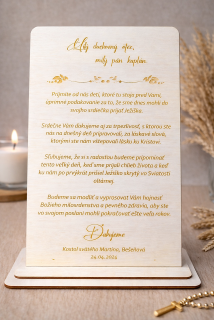 Náš duchovný otec,
milý pán kaplán
Prijmite od nás detí, ktoré tu stoja pred Vami,
úprimné poďakovanie za to, že sme dnes mohli do
svojho srdiečka prijať Ježiška.
Srdečne Vám ďakujeme aj za trpezlivosť, s ktorou ste
nás na dnešný deň pripravovali, za láskavé slová,
ktorými ste nám vštepovali lásku ku Kristovi.
Sľubujeme, že si s radosťou budeme pripomínať
tento veľký deň, keď sme prijali chlieb života a keď
ku nám po prvýkrát prišiel Ježiško skrytý vo Sviatosti
oltárnej.
Budeme sa modliť a vyprosovať Vám hojnosť
Božieho milosrdenstva a pevného zdravia, aby ste
vo svojom poslaní mohli pokračovať ešte veľa rokov.
Ďakujeme
Kostol svätého Martina, Bešeňová
26.04.2026